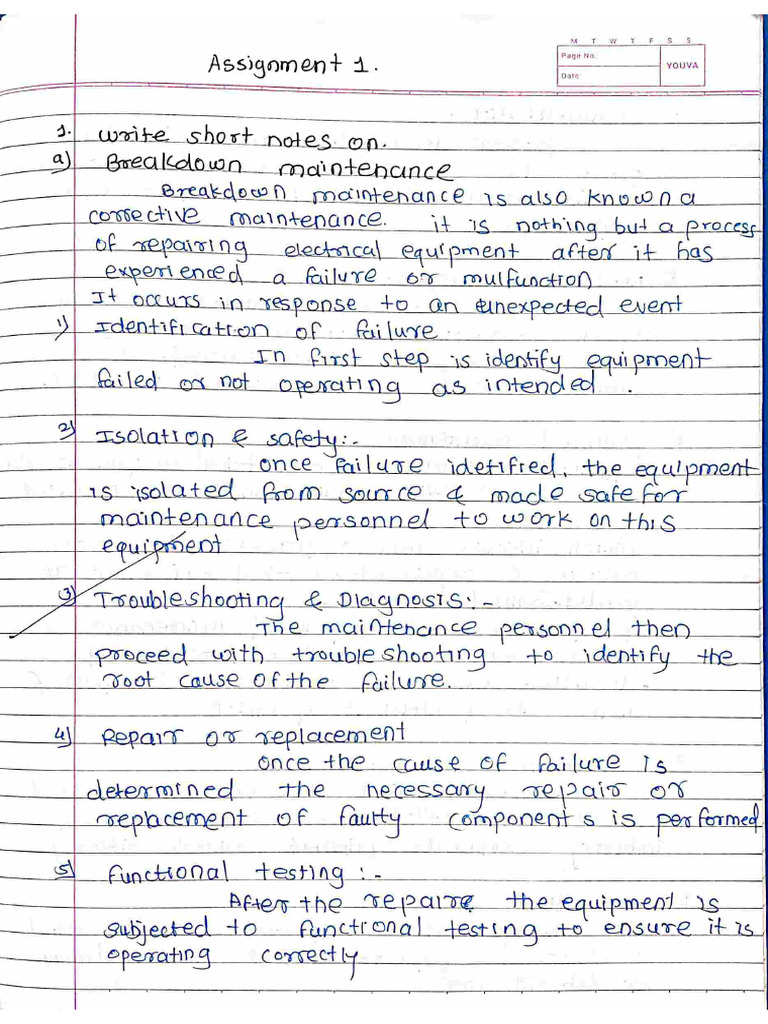 M T W T F S S
Page No.
YOUVA
Date:
Assignment 1.
1. Write short notes on.
a) Breakdown maintenance
Breakdown maintenance is also known a
corrective maintenance. it is nothing but a process
of repairing electrical equipment after it has
experienced a failure or mulfunction
It occurs in response to an unexpected event
1) Identification of failure.
In first step is identify equipment
failed or not operating as intended.
2) Isolation & safety:-
once failure idetified, the equipment
is isolated from source & made safe for
maintenance personnel to work on this
equipment
3) Troubleshooting & Diagnosis:-
The maintenance personnel then
proceed with trouble shooting to identify the
root cause of the failure.
4) Repair or replacement
once the cause of failure is
determined the necessary repair or
replacement of faulty components is performed
5) functional testing :-
After the repaire the equipment is
subjected to functional testing to ensure it is
operating correctly